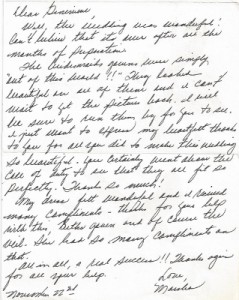 Dear Genevieve
Well, the Wedding was wonderful!
Can't believe that it's over after all the
months of preparation.
The bridesmaids gowns were simply,
"out of this world"!! They looked
beautiful on all of them and I can't
wait to get the pictures back. I will
be sure to run them by for you to see.
I just want to express my heartfelt thanks
to you for all you did to make this wedding
so beautiful. You certainly went above the
call of duty to see that they all fit so
perfectly. Thank so much!
My dress felt wonderful and I received
many compliments - thanks for your help
with this, both gown and of course the
veil. She has so many compliments on
that.
All in all, a real success!!! Thanks again
for all your help.
Love,
November 22nd Marsha